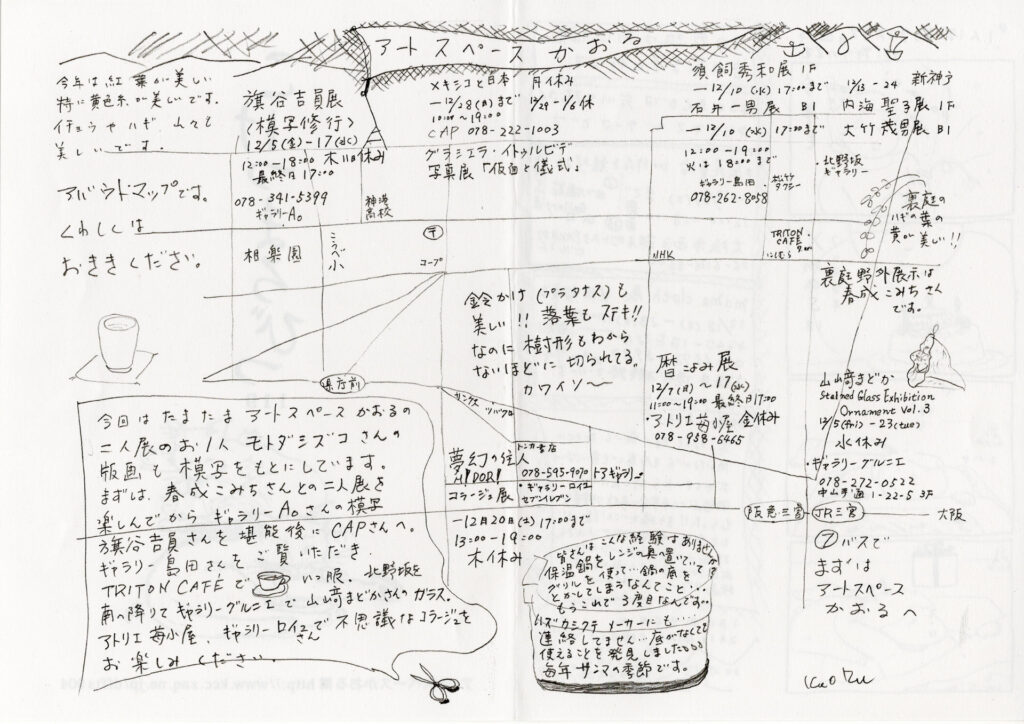 アートスペースかおる
今年は紅葉が美しい
特に黄色系が美しいです。
イチョウやハギ、
美しいです。
アバウトマップです。
くわしくは
おききください。
旗谷吉員展
〈模写修行〉
12/5(金)-17(水)
12:00-18:00 木曰休み
最終日17:00
078-341-5399
ギャラリーAo
神港
高校
メキシコと日本 月休み
-12/28(日)まで 12/29-1/6休
10:00-19:00
CAP 078-222-1003
グラシエラ・イトゥルビデ
写真展「仮面と儀式」
須飼秀和展 1F
-12/10(水)17:00まで
石井一男展 B1
-12/10(水)17:00まで
12:00-19:00
火は18:00まで
ギャラリー島田
078-262-8058
12/13-24
内海聖子展 1F
大竹茂男展 B1
新神戸
・北野坂
ギャラリー
タクシー
裏庭の
ハギの葉の
黄が美しい!!
TRITON
CAFÉ
にしむら
NHK
相楽園
こうべ小
〒
コープ
裏庭野外展示は
春成こみちさん
です。
鈴かけ(プラタナス)も
美しい!! 落葉もステキ!!
なのに樹形もわから
ないほどに切られてる。
カワイソ〜
暦こよみ展
12/7(日)〜17(水)
11:00〜19:00 最終日17:00
・アトリエ苺小屋 金休み
078-958-6465
山﨑まどか
Stained Glass Exhibition
Ornament Vol.3
12/5(fri)-23(tue)
水休み
・ギャラリーグルニエ
078-272-0522
中山手通1-22-5 3F
県庁前
リンクス
ツバクロ
トンカ書店
078-595-9070
トアギャラリー
夢幻の住人
MIDORI
コラージュ展
・ギャラリーロイユ
セブンイレブン
-12月20日(土)17:00まで
13:00-19:00
木休み
阪急三宮
JR三宮
大阪
⑦バスで
まずは
アートスペース
かおるへ
今回はたまたまアートスペースかおるの
二人展のお1人 モトダシズコさんの
版画も模写をもとにしています。
まずは、春成こみちさんとの二人展を
楽しんでから ギャラリーAoさんの模写
旗谷吉員さんを堪能後にCAPさんへ。
ギャラリー島田さんもご覧いただき、
TRITON CAFÉで いっ服。北野坂を
南へ降りてギャラリーグルニエで山﨑まどかさんのガラス。
アトリエ苺小屋、ギャラリーロイユさんで不思議なコラージュを
お楽しみください。
皆さんはこんな経験はありませんか?
保温鍋をレンジの奥に置いてて
グリルを使って…鍋の底を
とかしてしまうなんてこと…
もうこれで3度目なんです…
ハズカシクテメーカーにも…
連絡してません…底がなくても
使えることを発見しました
毎年サンマの季節です。
KaoRu